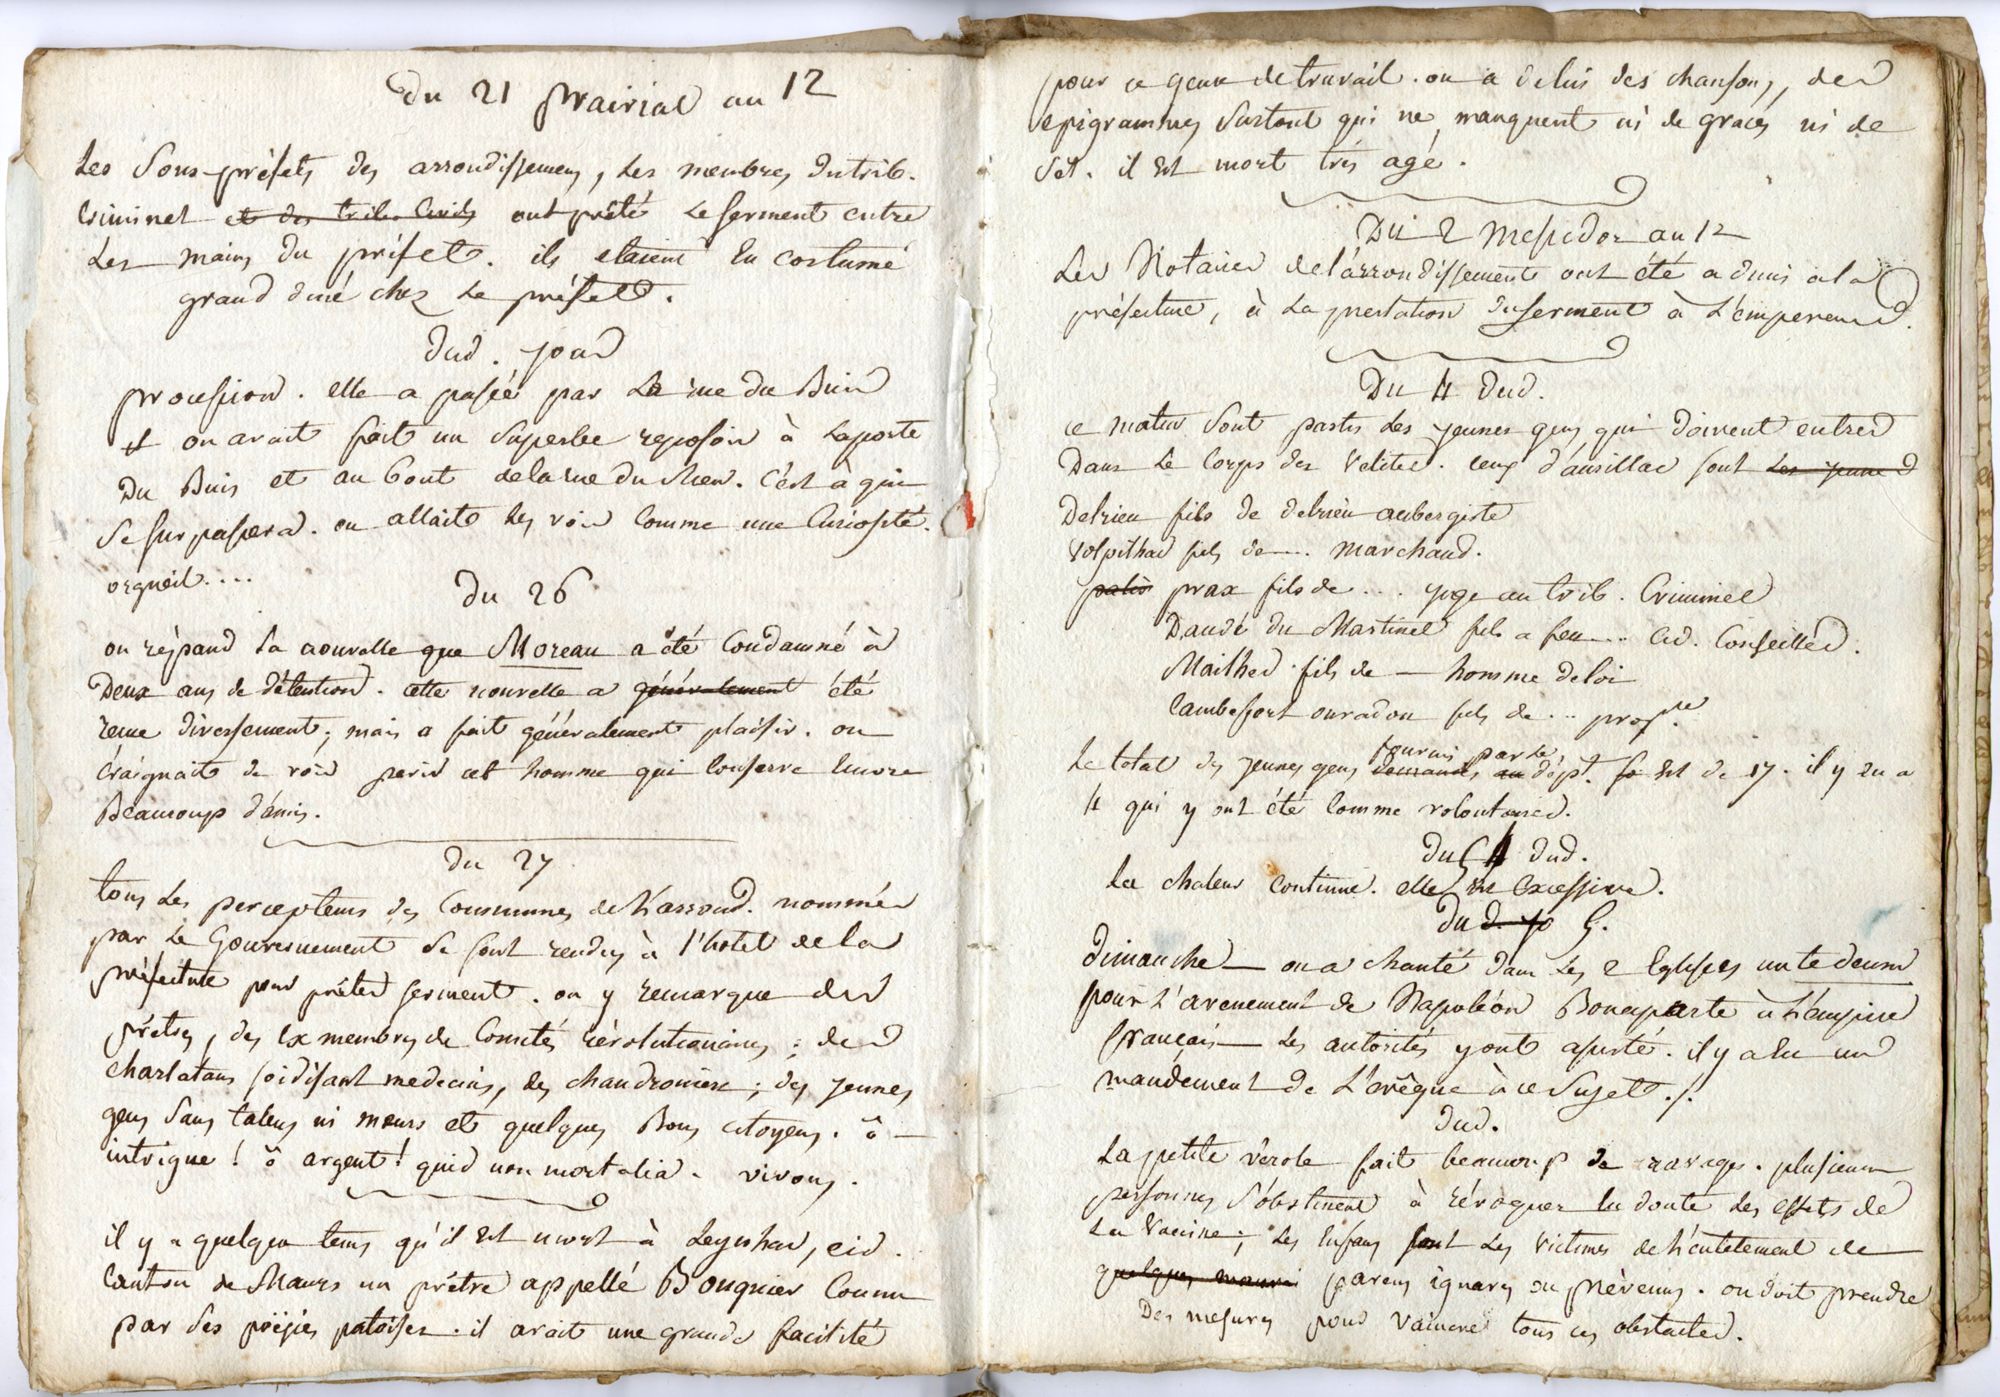 Du 21 prairial an 12
Les Sous-préfets des arrondissemens, les membres du trib.
Criminel et des trib. Civils ont prêté le serment entre
les mains du préfet. ils etaient en costume
grand diné chez le préfet.
Dud. jour
procession. elle a passée par la rue du Buis
on avait fait un superbe reposoir à la porte
Du Buis et au bout de la rue du. C'est à qui
se surpassera. on allait les voir comme une Curiosité.
orgueil....
Du 26
on répand la nouvelle que Moreau a été Condamné à
Deux ans de détention. cette nouvelle a généralement été
reçue diversement; mais a fait généralement plaisir. on
Craignait de voir perir cet homme qui Conserve Encore
Beaucoup d'amis.
Du 27
tous les percepteurs des Communes de l'arrond. nommés
par le Gouvernement se sont rendus à l'hotel de la
préfecture pour prêter serment. on y remarque des
prêtres, des ex membres de Comités révolutionaires; des
charlatans soidisant medecins, des chaudroniers; des jeunes
gens sans talens ni meurs et quelques Bons citoyens. ô
intrigue! ô argent! quid non mortalia. vivons.
il y a quelque tems qu'il est mort à Leynhac, cid.
Canton de Maurs un prêtre appellé Bouquier Connu
par ses poësies patoises. il avait une grande facilité
pour ce genre de travail. on a de lui des chansons, des
epigrammes surtout qui ne manquent ni de graces ni de
sel. il est mort très agé.
Du 2 Messidor an 12
Les Notaires de l'arrondissement ont été admis a la
préfecture, à la prestation du serment à L'émpereur.
Du 4 dud.
ce matin sont partis les jeunes gens qui doivent entrer
Dans le Corps des Velites. ceux d'aurillac sont les jeunes
Delrieu fils de delrieu aubergiste
Volpilhac fils de .... marchand.
prax fils de ... juge au trib. Criminel
Daudé du Martinel fils a feu .... Cid. Conseiller.
Mailhes fils de — homme de loi
Cambefort ouradou fils de ... propre
Le total des jeunes gens fournis par le dépt. est de 17. il y en a
4 qui y ont été comme volontaires.
Du 4 dud.
La chaleur continue. elle est excessive.
Dud. 5.
dimanche — on a chanté dans les 2 Eglises un te deum
pour l'avenement de Napoléon Bonaparte à l'empire
français — Les autorités y ont assisté. il y a eu un
mandement de L'evêque à ce sujet ./.
Dud.
La petite vérole fait beaucoup de ravages. plusieurs
personnes s'obstinent à révoquer en doute les effets de
la Vaccine; les Enfans sont les victimes de l'entêtement de
quelques mauvai parens ignares ou prévenus. on doit prendre
Des mesures pour vaincre tous ces obstacles.